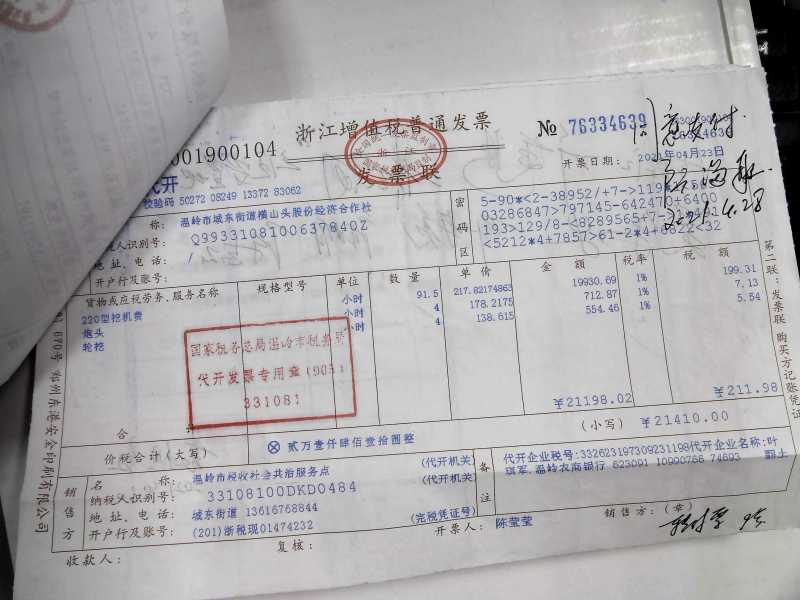 浙江增值税普通发票
发票联
001900104
№ 76334639
开票日期: 2021年04月23日
代开
校验码 50272 08249 13372 83062
称: 温岭市城东街道横山头股份经济合作社
纳税人识别号: Q9933108100637840Z
地址、电话: /
开户行及账号:
密码区
5-90*<2-38952/+7->119*
03286847>797145-642470+6400
193>129/8-<8289565+7->
<5212*4+7857>61-2*4+6822<32
同意支付
2021.4.28
货物或应税劳务、服务名称 规格型号 单位 数量 单价 金额 税率 税额
220型挖机费 小时 91.5 217.82174863 19930.69 1% 199.31
炮头 小时 4 178.2175 712.87 1% 7.13
轮挖 小时 4 138.615 554.46 1% 5.54
国家税务总局温岭市税务局
代开发票专用章
331081
合计 ¥21198.02 ¥211.98
价税合计(大写) ⊗ 贰万壹仟肆佰壹拾圆整 (小写) ¥21410.00
销售方
名称: 温岭市税收社会共治服务点 (代开机关)
纳税人识别号: 33108100DKD0484 (代开机关)
地址、电话: 城东街道 13616768844
开户行及账号: (201)浙税现01474232 (完税凭证号)
备注
代开企业税号:332623197309231198代开企业名称:叶
琪军,温岭农商银行 623091 10990766 74693
收款人: 复核: 开票人: 陈莹莹 销售方:(章)
第二联:发票联 购买方记账凭证
670号 郑州东港安全印刷有限公司